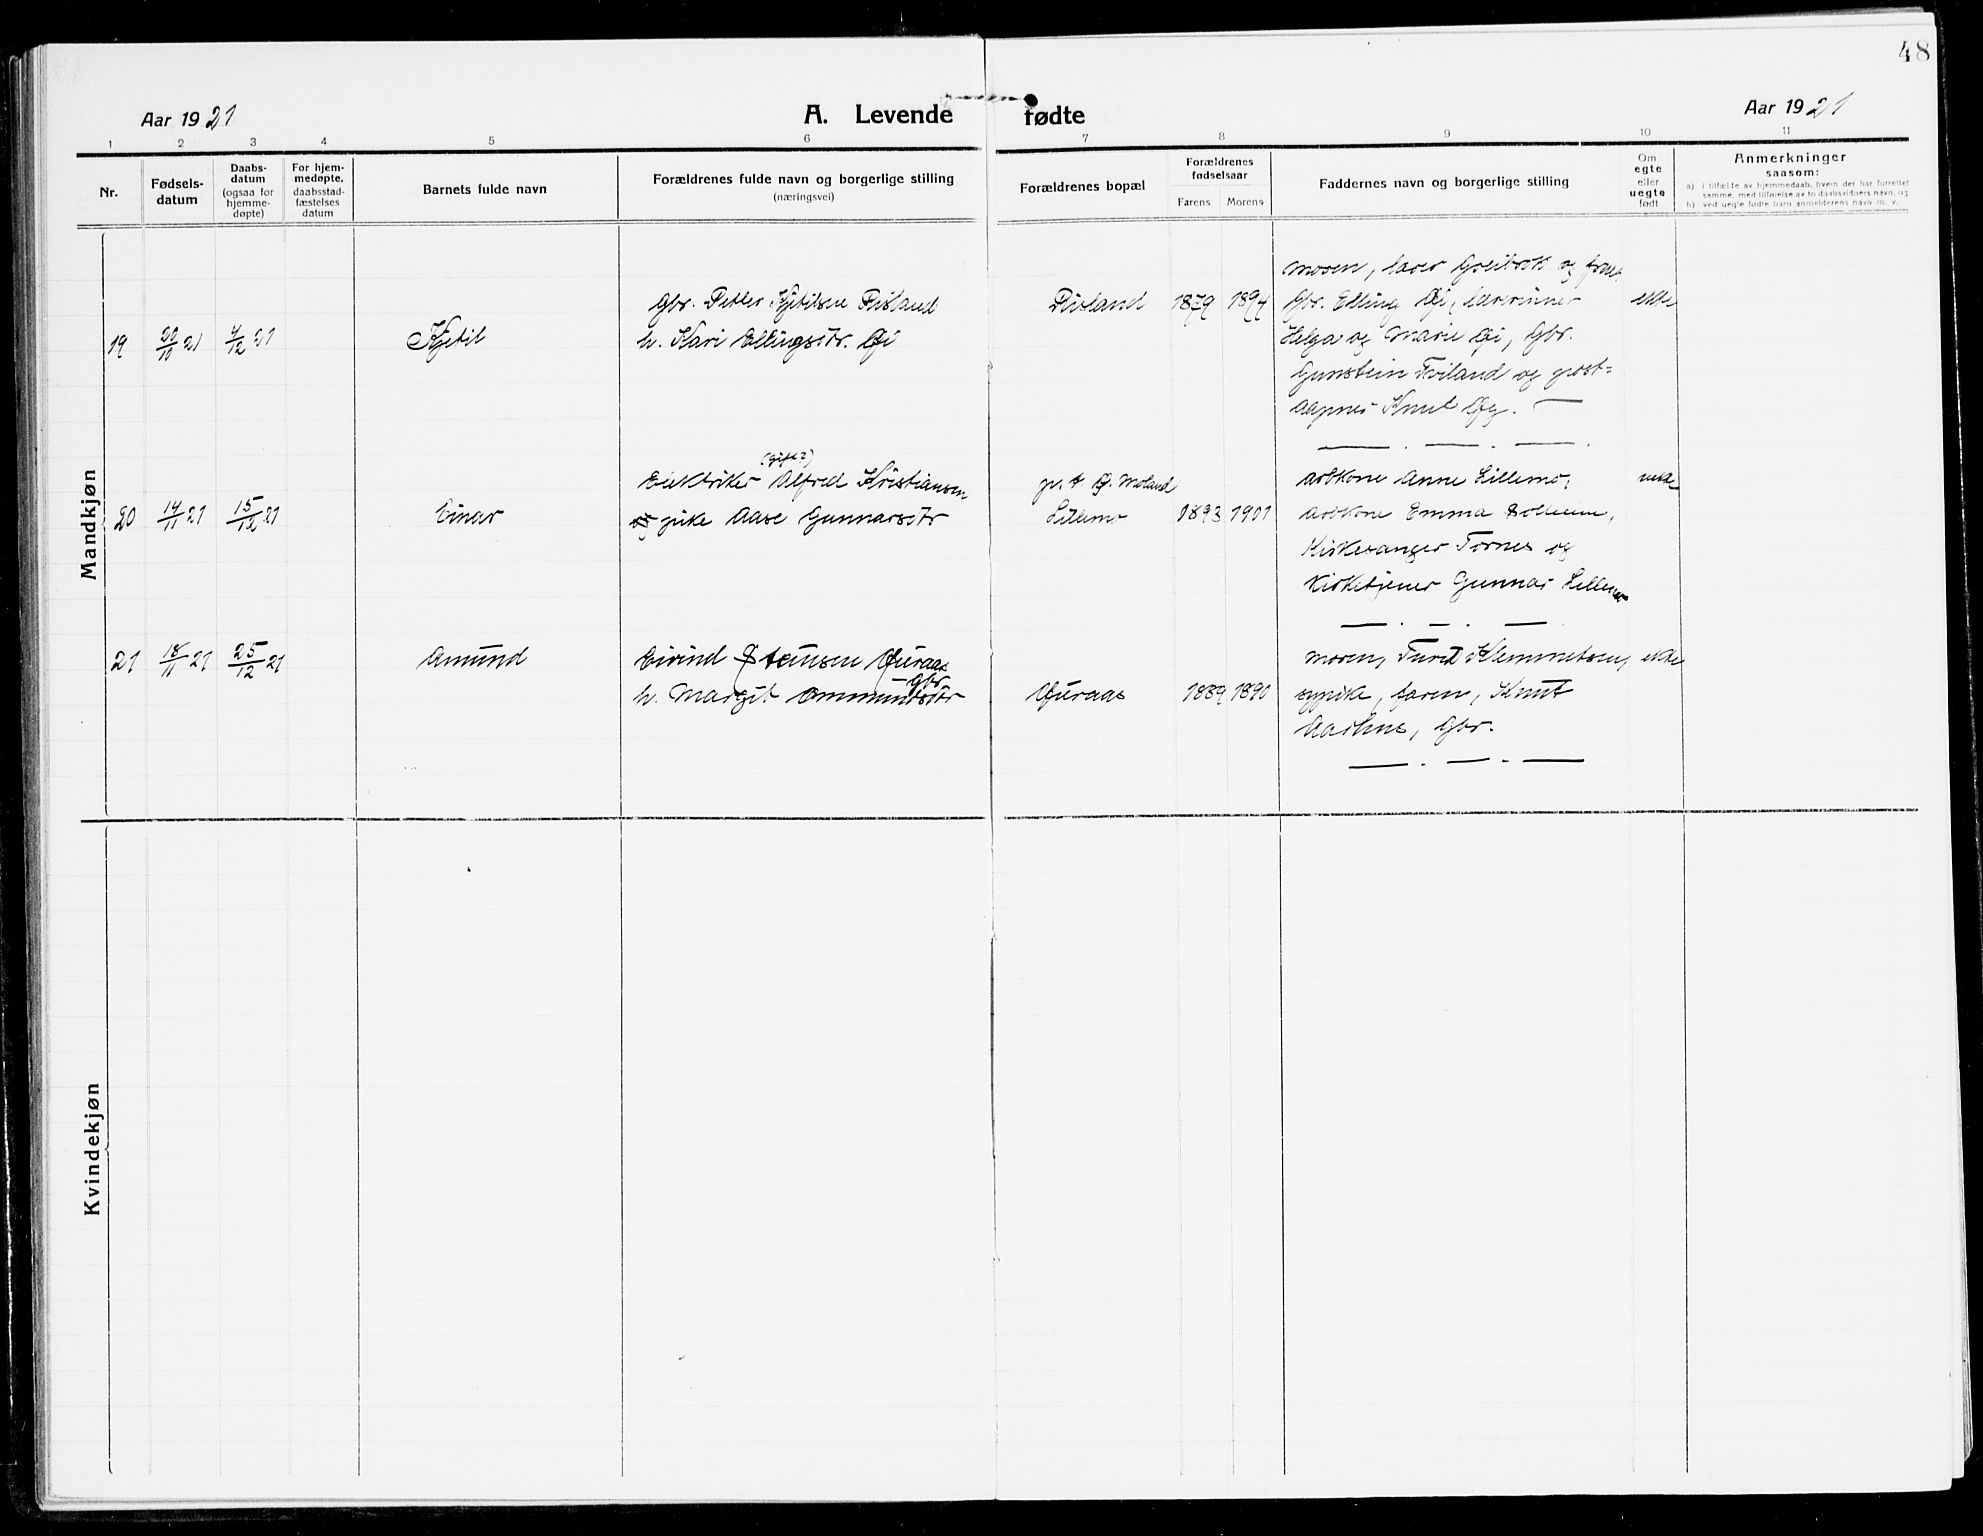 48
Aar 1921
A. Levende fødte
Aar 1921
1 2 3 4 5 6 7 8 9 10 11
Nr.
Fødsels-
datum
Daabs-
datum
(ogsaa for
hjemme-
døpte)
For hjem-
medøpte,
daabsstad-
fæstelses
datum
Barnets fulde navn
Forældrenes fulde navn og borgerlige stilling
(næringsvei)
Forældrenes bopæl
Forældrenes
fødselsaar
Farens Morens
Faddernes navn og borgerlige stilling
Om
egte
eller
uegte
født
Anmerkninger
saasom:
a) i tilfælde av hjemmedaab, hvem der har forrettet
samme, med tilføielse av to daabsvidners navn, og
b) ved uegte fødte barn anmelderens navn m. v.
Mandkjøn
19
29/10 21
4/12 21
Kjetil
Gbr. Petter Kjetilsen Risland
h. Kari Ellingsdtr. Øi
Risland
1879 1894
moren, lærer Greibrok og frue,
Gbr. Elling Øi, lærerinner
Helga og Marie Øi, Gbr.
Gunstein Tviland og post-
aapner Knut Øy.
ekte
20
14/11 21
15/12 21
Einar
(gift?)
Elektriker Alfred Kristiansen
og pike Aase Gunnarsdtr
p. t. Ø. Moland
Lillemo
1893 1901
arbkone Anne Lillemo,
arbkone Emma Solheim,
Kirkesanger Tornes og
Kirketjener Gunnar Lillemo
uekte
21
18/11 21
25/12 21
Amund
Eivind Stensen Øuraas
Gbr.
h. Margit Ammundsdtr
Øuraas
1889 1890
moren, Turid Klemmetsen,
sypike, faren, Knut
Aarhus, Gbr.
ekte
Kvindekjøn